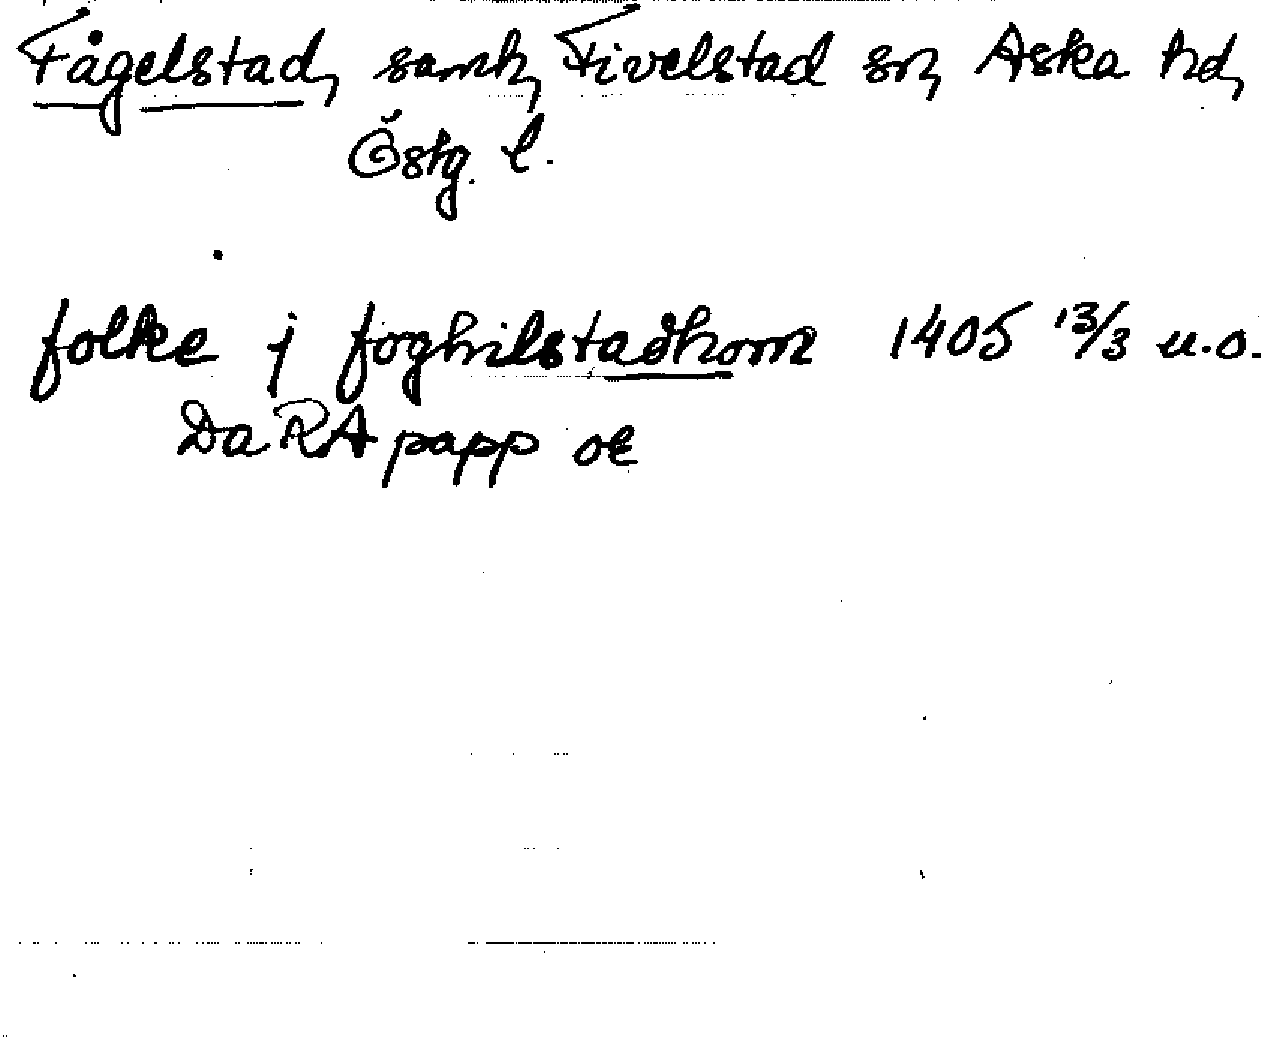 Fågelstad, samh, Fivelstad sn, Aska hd,
Östg. l.
folke j foghilstadhom 1405 13/3 u.o.
DaRA papp or